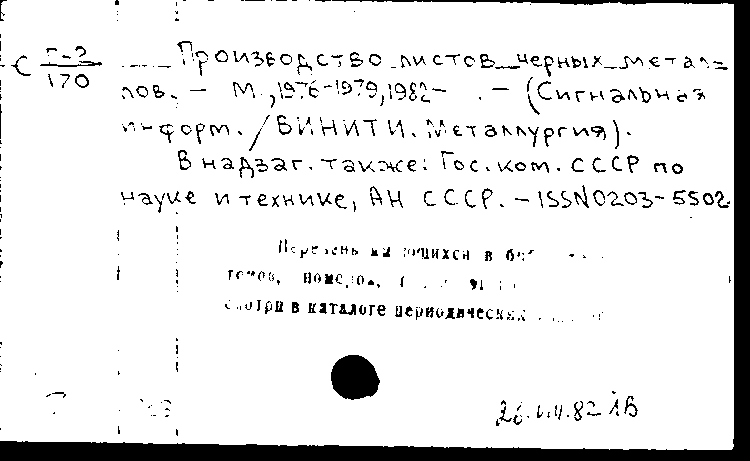 С Г-2
170
Производство листов черных метал=
лов. – М., 1976-1979, 1982- . – (Сигнальная
информ. / ВИНИТИ. Металлургия).
В надзаг. также: Гос. ком. СССР по
науке и технике, АН СССР. – ISSN 0203-5502
Перечень в
томов,
смотри в каталоге периодических
82 ЛВ